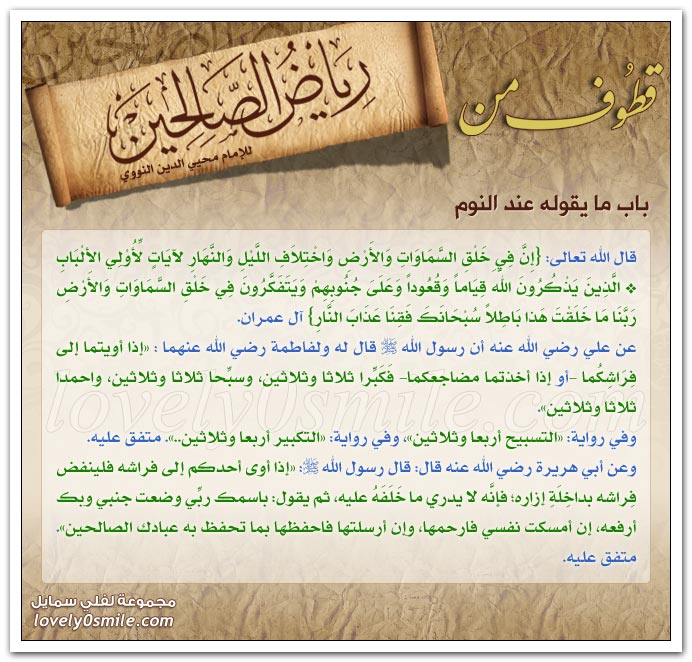 قطوف من
رياض الصالحين
للإمام محيي الدين النووي
باب ما يقوله عند النوم
قال الله تعالى: {إِنَّ فِي خَلْقِ السَّمَاوَاتِ وَالأَرْضِ وَاخْتِلاَفِ اللَّيْلِ وَالنَّهَارِ لآيَاتٍ لِّأُوْلِي الألْبَابِ
❖ الَّذِينَ يَذْكُرُونَ اللّهَ قِيَاماً وَقُعُوداً وَعَلَىَ جُنُوبِهِمْ وَيَتَفَكَّرُونَ فِي خَلْقِ السَّمَاوَاتِ وَالأَرْضِ
رَبَّنَا مَا خَلَقْتَ هَذا بَاطِلاً سُبْحَانَكَ فَقِنَا عَذَابَ النَّارِ} آل عمران.
عن علي رضي الله عنه أن رسول الله ﷺ قال له ولفاطمة رضي الله عنهما : «إذا أويتما إلى
فِرَاشِكُما -أو إذا أخذتما مضاجعكما- فَكَبِّرا ثلاثا وثلاثين، وسبِّحا ثلاثا وثلاثين، واحمدا
ثلاثا وثلاثين».
وفي رواية: «التسبيح أربعا وثلاثين»، وفي رواية: «التكبير أربعا وثلاثين..». متفق عليه.
وعن أبي هريرة رضي الله عنه قال: قال رسول الله ﷺ: «إذا أوى أحدكم إلى فراشه فلينفض
فِراشه بداخِلَةِ إزاره؛ فإنَّه لا يدري ما خَلَفَهُ عليه، ثم يقول: باسمك ربِّي وضعت جنبي وبك
أرفعه، إن أمسكت نفسي فارحمها، وإن أرسلتها فاحفظها بما تحفظ به عبادك الصالحين».
متفق عليه.
lovely0smile.com
مجموعة لفلي سمايل
lovely0smile.com